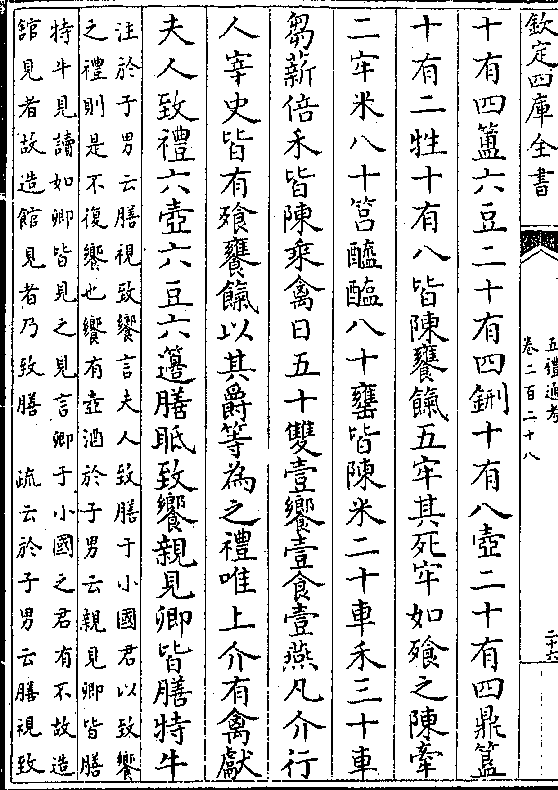 欽定四庫全書
五禮通考
卷二百二十八
二十六
十有四簠六豆二十有四鉶十有八壺二十有四鼎簋
十有二牲十有八皆陳饔餼五牢其死牢如飧之陳牽
二牢米八十筥醯醢八十罋皆陳米二十車禾三十車
芻薪倍禾皆陳乘禽日五十雙壹饗壹食壹燕凡介行
人宰史皆有飧饔餼以其爵等為之禮唯上介有禽獻
夫人致禮六壺六豆六籩膳眡致饗親見卿皆膳特牛
注於子男云膳視致饗言夫人致膳于小國君以致饗
之禮則是不復饗也饗有壺酒於子男云親見卿皆膳
特牛見讀如卿皆見之見言卿于小國之君有不故造
舘見者故造舘見者乃致膳　疏云於子男云膳視致